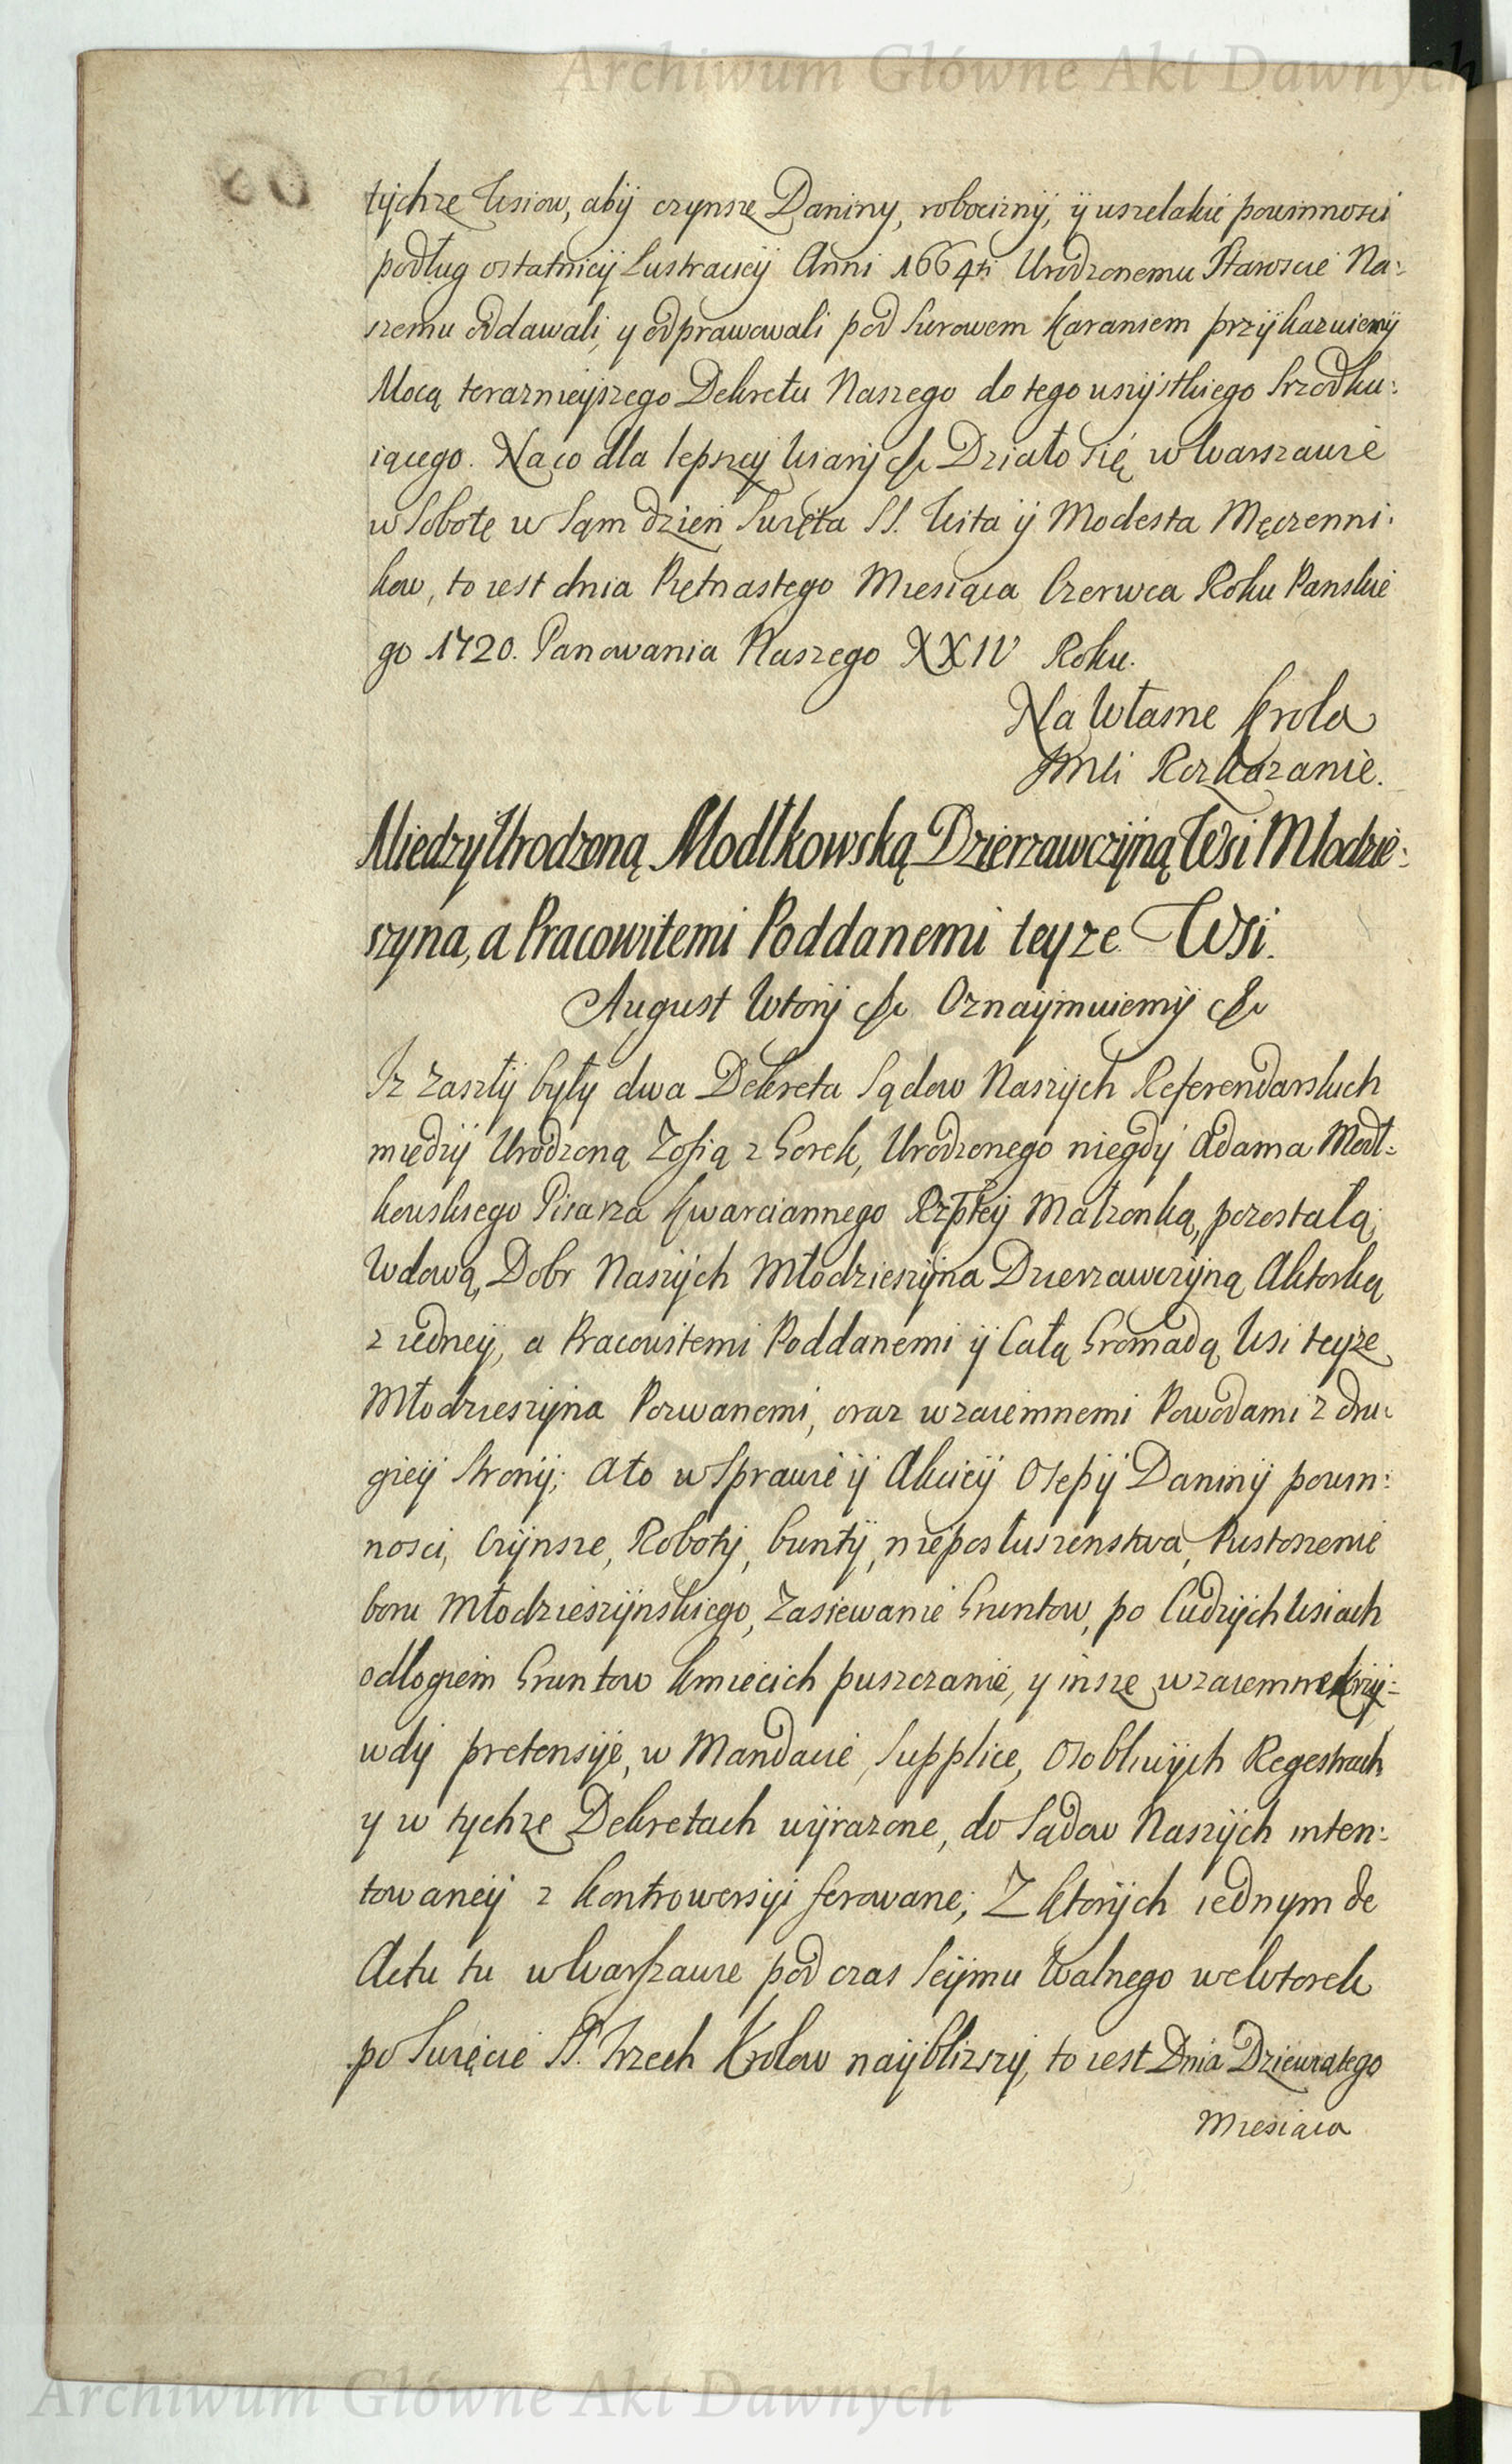 Archiwum Główne Akt Dawnych
tychze Wsiow, aby czynsze Daniny, robocizny, y wszelakie powinnosci
podług ostatniey Lustracyey Anni 1664ti Urodzonemu Staroscie Na:
szemu oddawali, y odprawowali pod surowem karaniem przykazuiemy
Mocą terazniejszego Dekretu Naszego do tego wszystkiego srzodku:
iącego. Na co dla lepszey wiary &c Działo się w Warszawie
w Sobotę w sąm dzień Swięta SS. Wita y Modesta Męczenni:
kow, to iest dnia Piętnastego Miesiąca Czerwca Roku Panskie
go 1720. Panowania Naszego XXIV Roku.
Na Własne Krola
Jmci Rozkazanie.
Miedzy Urodzoną Modlkowską Dzierzawczyną Wsi Mlodzie:
szyna, a Pracowitemi Poddanemi teyze Wsi.
August Wtory &c Oznaymuiemy &c
Iz zaszły były dwa Dekreta Sądow Naszych Referendarskich
między Urodzoną Zofią z Gorek, Urodzonego niegdy Adama Modł:
kowskiego Pisarza Kwarciannego Rzpltey Małzonką, pozostałą
Wdową, Dobr Naszych Młodzieszyna Dzierzawczyną Aktorką
z iedney, a Pracowitemi Poddanemi y Całą Gromadą Wsi teyze
Młodzieszyna Pozwanemi, oraz wzaiemnemi Powodami z dru:
giey strony; Ato w Sprawie y Akcyey Osepy Daniny powin:
nosci, Czynsze, Roboty, bunty, nieposłuszenstwa, Pustoszenie
boru Młodzieszynskiego, Zasiewanie Gruntow, po Cudzych Wsiach
odlogiem Gruntow Kmiecich puszczanie, y insze wzaiemne krzy:
wdy pretensye, w Mandacie, Supplice, Osobliwych Regestrach
y w tychze Dekretach wyrazone, do Sądow Naszych inten:
towaney z kontrowersyi ferowane; Z ktorych iednym de
Actu tu w Warszawie pod czas Seymu Walnego we Wtorek
po Swięcie SS. Trzech Krolow nayblizszy, to iest Dnia Dziewiątego
Miesiąca
Archiwum Główne Akt Dawnych